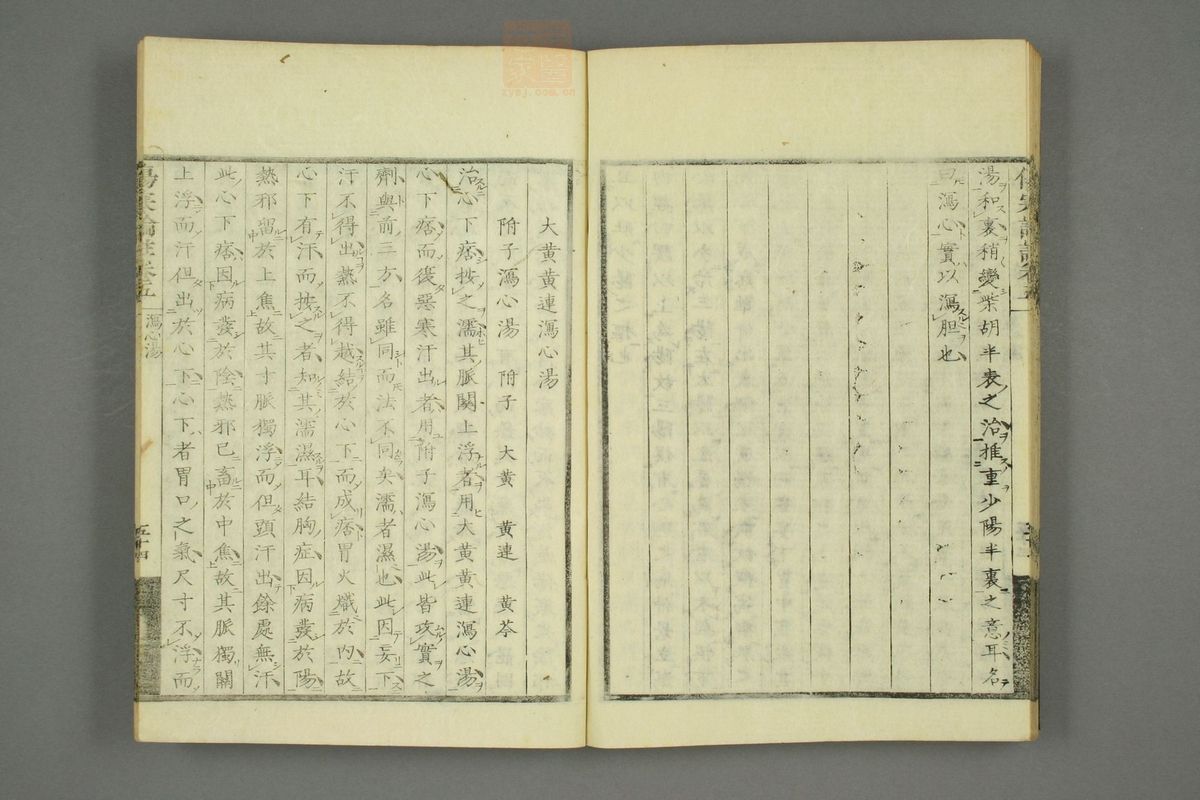 湯和裏稍變柴胡半表之治推重少陽半裏之意耳名
曰瀉心實以瀉胆也
大黄黄連瀉心湯
附子瀉心湯 附子 大黄 黄連 黄芩
治心下痞按之濡其脈關上浮者用大黄黄連瀉心湯
心下痞而復惡寒汗出者用附子瀉心湯此皆攻實之
劑與前三方名雖同而法不同矣濡者濕也此因妄下
汗不得出熱不得越結於心下而成痞胃火熾於内故
心下有汗而按之者知其濡濕耳結胸症因病發於陽
熱邪留於上焦故其寸脈獨浮而但頭汗出餘處無汗
此心下痞因病發於陰熱邪已畜於中焦故其脈獨關
上浮而汗但出於心下心下者胃口之氣尺寸不浮而
瀉心湯
五十四
zysj.com.cn